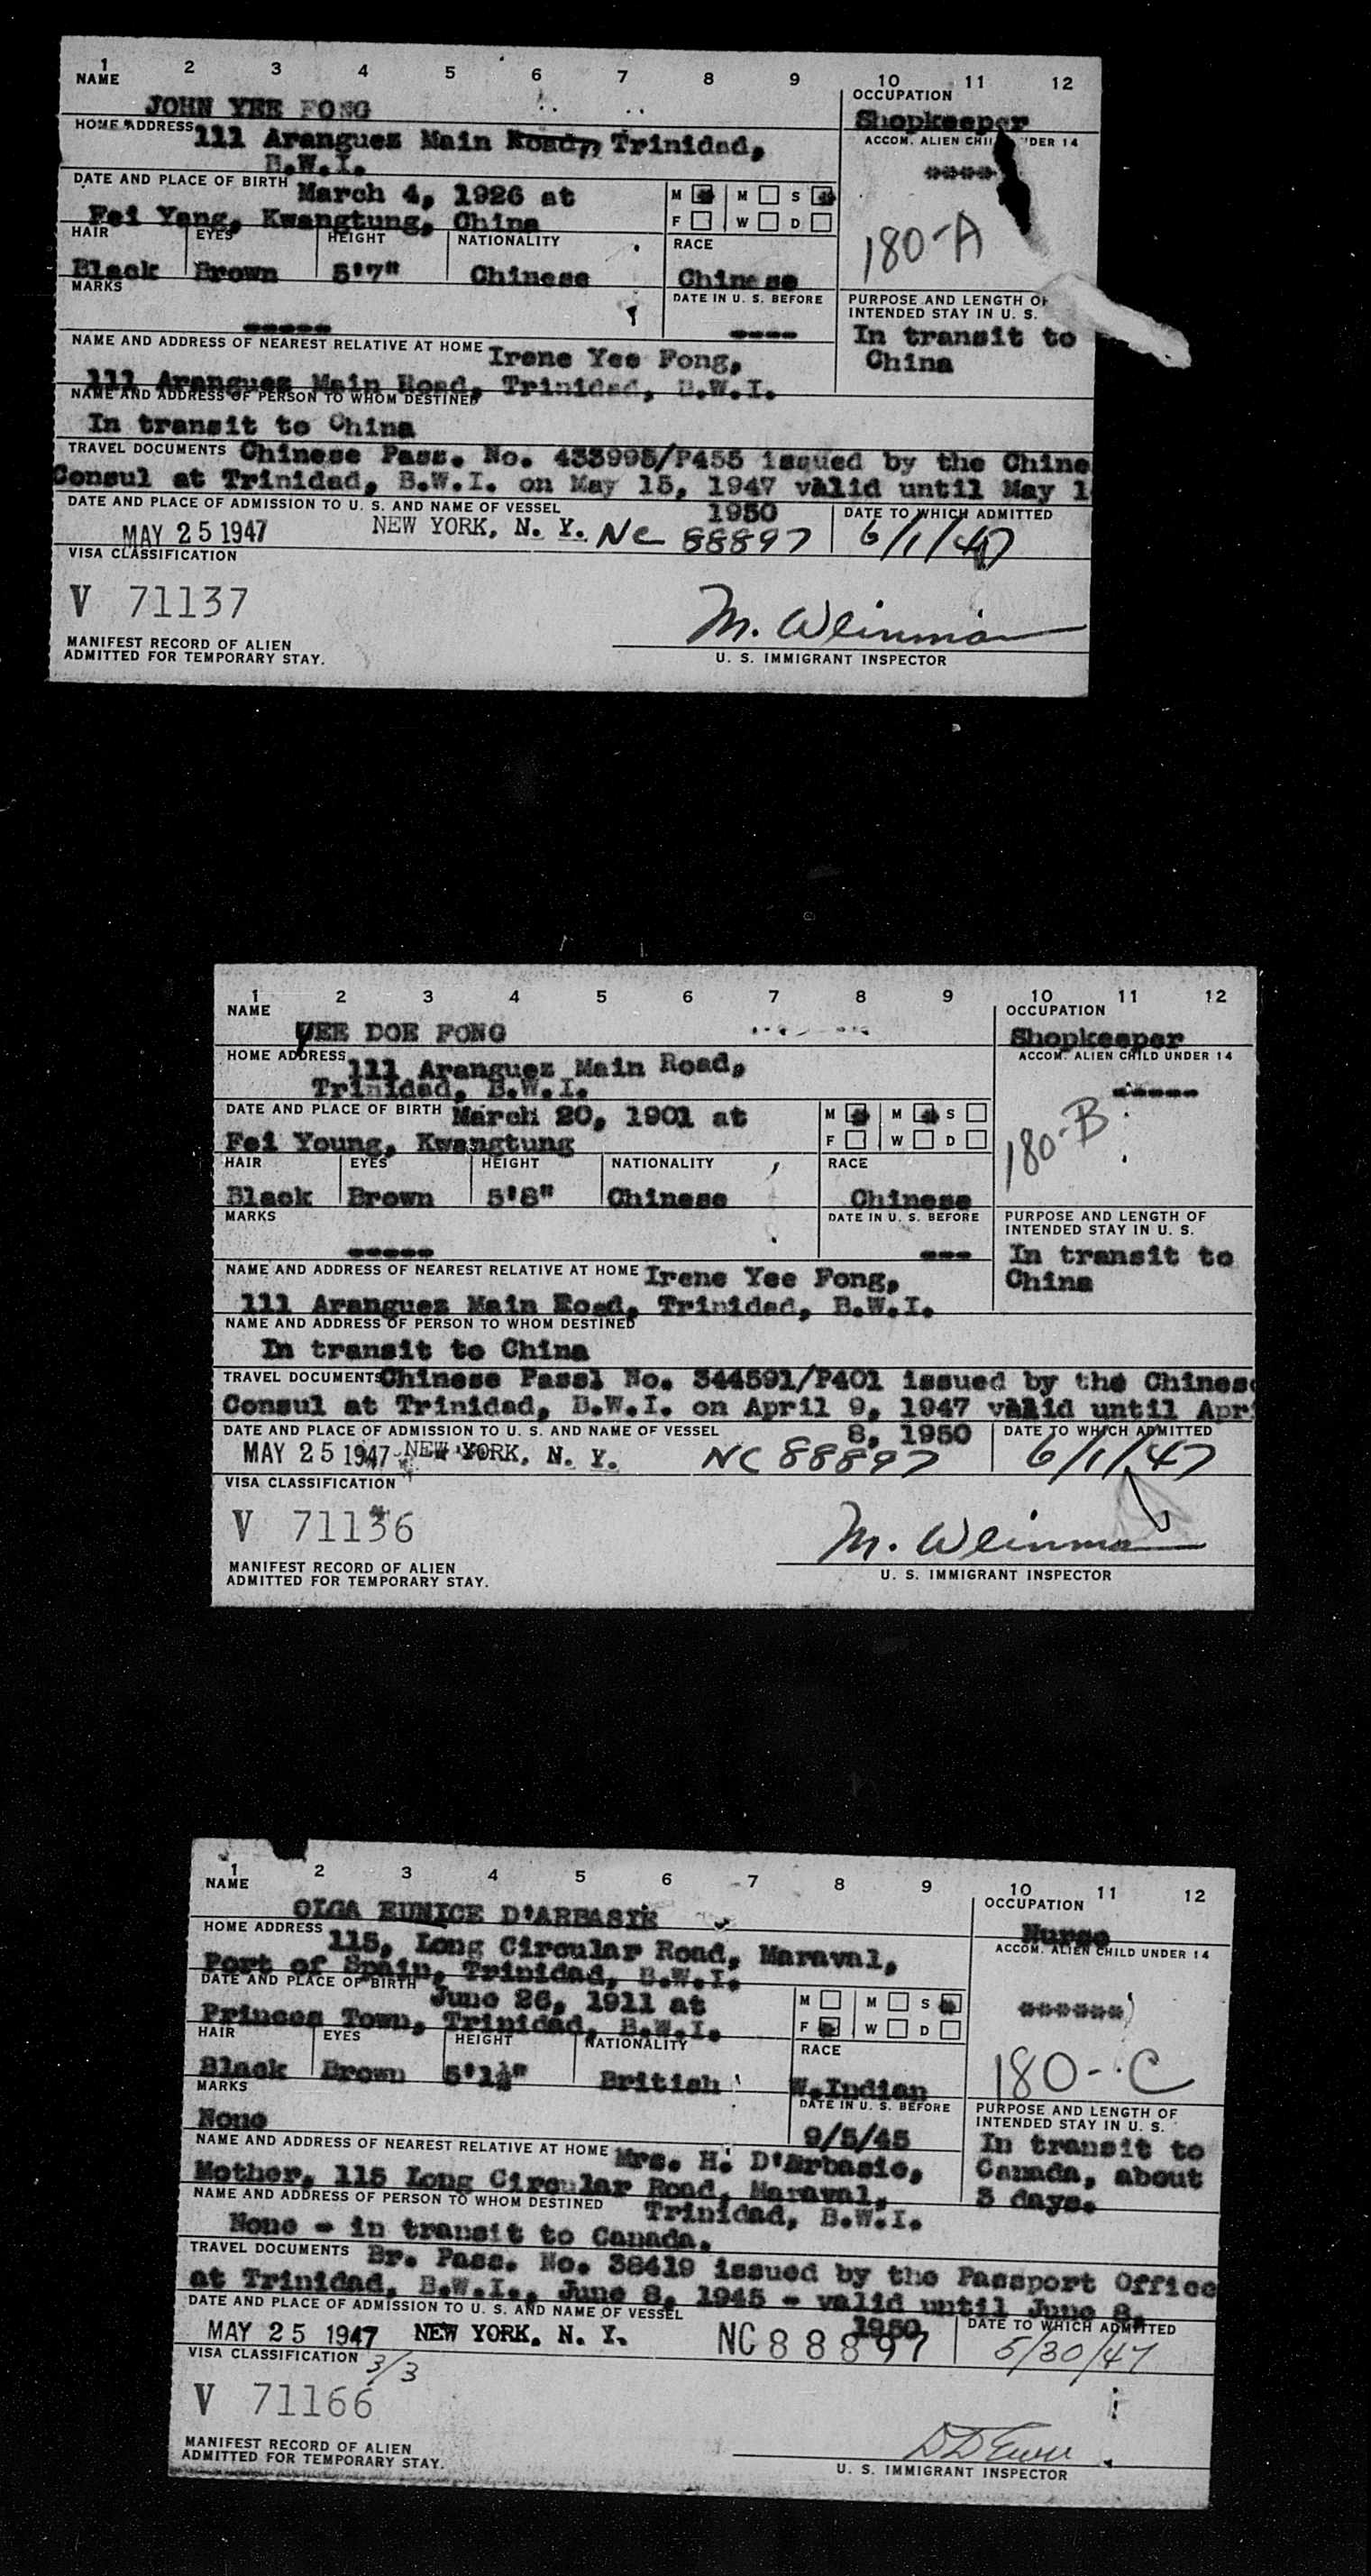 1 2 3 4 5 6 7 8 9 10 11 12
NAME
OCCUPATION
JOHN YEE FONG
Shopkeeper
HOME ADDRESS 111 Aranguez Main Road, Trinidad,
B.W.I.
ACCOM. ALIEN CHI DER 14
*****
DATE AND PLACE OF BIRTH March 4, 1926 at
Fei Yang, Kwangtung, China
M M S
F W D
180-A
HAIR EYES HEIGHT NATIONALITY RACE
Black Brown 5'7" Chinese Chinese
MARKS
-----
DATE IN U. S. BEFORE
----
PURPOSE AND LENGTH OF
INTENDED STAY IN U. S.
In transit to
China
NAME AND ADDRESS OF NEAREST RELATIVE AT HOME Irene Yee Fong,
111 Aranguez Main Road, Trinidad, B.W.I.
NAME AND ADDRESS OF PERSON TO WHOM DESTINED
In transit to China
TRAVEL DOCUMENTS Chinese Pass. No. 433995/P455 issued by the Chine
Consul at Trinidad, B.W.I. on May 15, 1947 valid until May 1
1950
DATE AND PLACE OF ADMISSION TO U. S. AND NAME OF VESSEL
DATE TO WHICH ADMITTED
MAY 25 1947 NEW YORK, N. Y. NC 88897 6/1/47
VISA CLASSIFICATION
V 71137
M. Weinman
MANIFEST RECORD OF ALIEN
ADMITTED FOR TEMPORARY STAY.
U. S. IMMIGRANT INSPECTOR
1 2 3 4 5 6 7 8 9 10 11 12
NAME
OCCUPATION
YEE DOE FONG
Shopkeeper
HOME ADDRESS 111 Aranguez Main Road,
Trinidad, B.W.I.
ACCOM. ALIEN CHILD UNDER 14
-----
DATE AND PLACE OF BIRTH March 20, 1901 at
Fei Young, Kwangtung
M M S
F W D
180-B
HAIR EYES HEIGHT NATIONALITY RACE
Black Brown 5'8" Chinese Chinese
MARKS
-----
DATE IN U. S. BEFORE
---
PURPOSE AND LENGTH OF
INTENDED STAY IN U. S.
In transit to
China
NAME AND ADDRESS OF NEAREST RELATIVE AT HOME Irene Yee Fong,
111 Aranguez Main Road, Trinidad, B.W.I.
NAME AND ADDRESS OF PERSON TO WHOM DESTINED
In transit to China
TRAVEL DOCUMENTS Chinese Passl No. 344591/P401 issued by the Chinese
Consul at Trinidad, B.W.I. on April 9, 1947 valid until Apri
8, 1950
DATE AND PLACE OF ADMISSION TO U. S. AND NAME OF VESSEL
DATE TO WHICH ADMITTED
MAY 25 1947 NEW YORK, N. Y. NC 88897 6/1/47
VISA CLASSIFICATION
V 71136
M. Weinman
MANIFEST RECORD OF ALIEN
ADMITTED FOR TEMPORARY STAY.
U. S. IMMIGRANT INSPECTOR
1 2 3 4 5 6 7 8 9 10 11 12
NAME
OCCUPATION
OLGA EUNICE D'ARBASIE
Nurse
HOME ADDRESS 115, Long Circular Road, Maraval,
Port of Spain, Trinidad, B.W.I.
ACCOM. ALIEN CHILD UNDER 14
******
DATE AND PLACE OF BIRTH June 26, 1911 at
Princes Town, Trinidad, B.W.I.
M M S
F W D
180-C
HAIR EYES HEIGHT NATIONALITY RACE
Black Brown 5'1½" British W.Indian
MARKS
None
DATE IN U. S. BEFORE
9/5/45
PURPOSE AND LENGTH OF
INTENDED STAY IN U. S.
In transit to
Canada, about
3 days.
NAME AND ADDRESS OF NEAREST RELATIVE AT HOME Mrs. H. D'Arbasie,
Mother, 115 Long Circular Road, Maraval,
Trinidad, B.W.I.
NAME AND ADDRESS OF PERSON TO WHOM DESTINED
None - in transit to Canada.
TRAVEL DOCUMENTS Br. Pass. No. 38419 issued by the Passport Office
at Trinidad, B.W.I., June 8, 1945 - valid until June 8,
1950
DATE AND PLACE OF ADMISSION TO U. S. AND NAME OF VESSEL
DATE TO WHICH ADMITTED
MAY 25 1947 NEW YORK, N. Y. NC 88897 5/30/47
VISA CLASSIFICATION 3/3
V 71166
MANIFEST RECORD OF ALIEN
ADMITTED FOR TEMPORARY STAY.
U. S. IMMIGRANT INSPECTOR